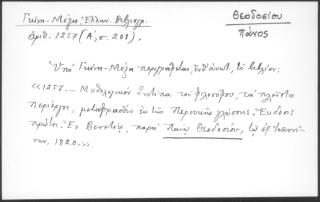 Γκίνη-Μέξα, Ἑλλην. Βιβλιογρ.
ἀριθ. 1257 (Α', σ. 201).
Θεοδοσίου
Πάνος
Ὑπὸ Γκίνη-Μέξα περιγράφεται, ὑπ' ἀριθ., τὸ βιβλίον:
«1257.– Μυθολογικὸν Συντίπα τοῦ φιλοσόφου, τὰ πλεῖστα
περίεργον, μεταφρασθὲν ἐκ τῆς Περσικῆς γλώσσης. Ἔκδοσις
πρώτη. Ἐν Βενετίᾳ, παρὰ Πάνῳ Θεοδοσίου, τῷ ἐξ Ἰωαννί-
νων, 1820.»